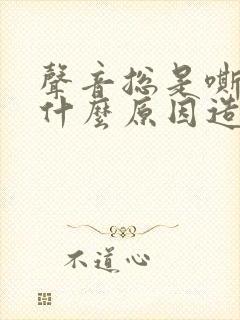 聲音總是嘶
什麼原因造
不道心